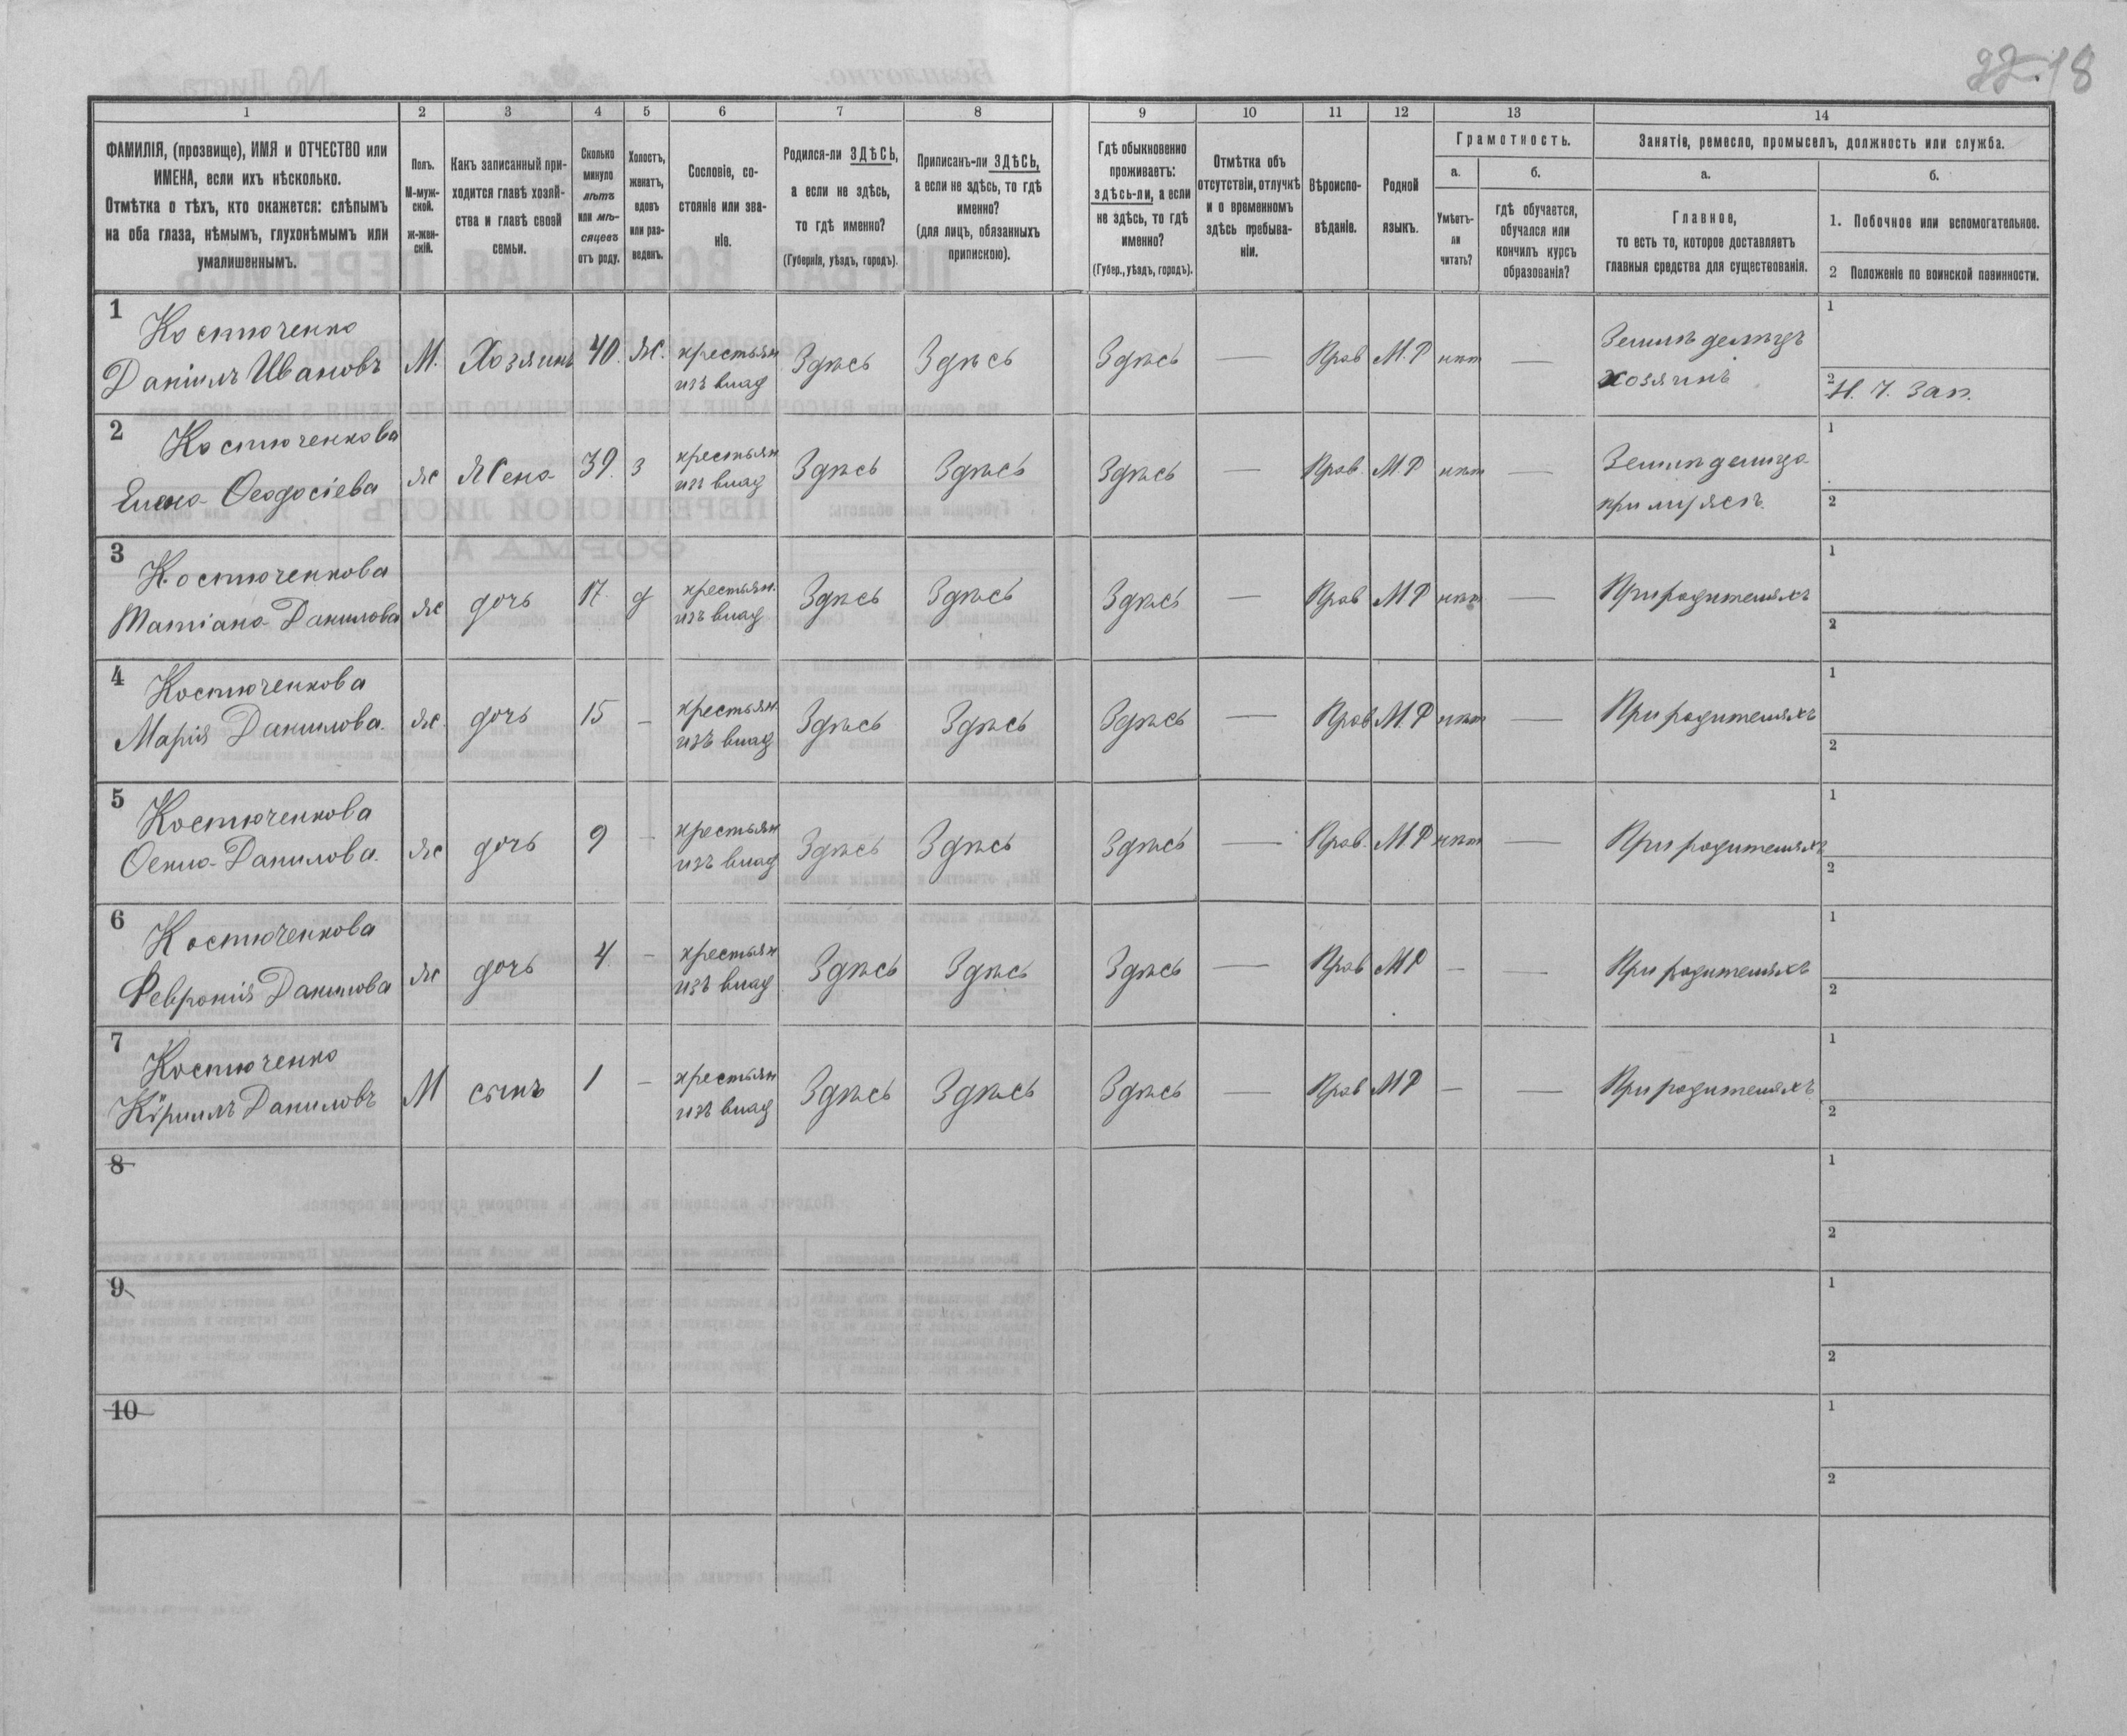 22. 18
1 2 3 4 5 6 7 8 9 10 11 12 13 14
ФАМИЛІЯ, (прозвище), ИМЯ и ОТЧЕСТВО или
ИМЕНА, если ихъ нѣсколько.
Отмѣтка о тѣхъ, кто окажется: слѣпымъ
на оба глаза, нѣмымъ, глухонѣмымъ или
умалишеннымъ.
Полъ.
М-муж-
ской.
ж-жен-
скій.
Какъ записанный при-
ходится главѣ хозяй-
ства и главѣ своей
семьи.
Сколько
минуло
лѣтъ
или мѣ-
сяцевъ
отъ роду.
Холостъ,
женатъ,
вдовъ
или раз-
веденъ.
Сословіе, со-
стояніе или зва-
ніе.
Родился-ли ЗДѢСЬ,
а если не здѣсь,
то гдѣ именно?
(Губернія, уѣздъ, городъ).
Приписанъ-ли ЗДѢСЬ,
а если не здѣсь, то гдѣ
именно?
(для лицъ, обязанныхъ
припискою).
Гдѣ обыкновенно
проживаетъ:
здѣсь-ли, а если
не здѣсь, то гдѣ
именно?
(Губер., уѣздъ, городъ).
Отмѣтка объ
отсутствіи, отлучкѣ
и о временномъ
здѣсь пребыва-
ніи.
Вѣроиспо-
вѣданіе.
Родной
языкъ.
Грамотность.
а.
Умѣетъ-
ли
читать?
б.
гдѣ обучается,
обучался или
кончилъ курсъ
образованія?
Занятіе, ремесло, промыселъ, должность или служба.
а.
Главное,
то есть то, которое доставляетъ
главныя средства для существованія.
б.
1. Побочное или вспомогательное.
2 Положеніе по воинской повинности.
1
Костюченко
Даніилъ Ивановъ М. Хозяинъ 40. Ж. крестьян Здѣсь Здѣсь Здѣсь — Прав М.Р нѣт — Земледѣлецъ 1
изъ влад хозяинъ 2 Н. Ч. Зап.
2
Костюченкова
Елена Ѳеодосіева ж Жена 39. З крестьян Здѣсь Здѣсь Здѣсь — Прав. М.Р нѣт — 1
изъ влад при мужѣ 2
3
Костюченкова
Татіана Данилова ж дочь 17. д крестьян. Здѣсь Здѣсь Здѣсь — Прав М Р нѣт — При родителяхъ 1
изъ влад 2
4
Костюченкова
Марія Данилова. ж. дочь 15 — крестьян Здѣсь Здѣсь Здѣсь — Прав М.Р нѣт — При родителяхъ 1
изъ влад 2
5
Костюченкова
Данилова. ж дочь 9 - крестьян Здѣсь Здѣсь Здѣсь — Прав. М Р нѣт — При родителяхъ 1
изъ влад 2
6
Костюченкова
Февронія Данилова ж дочь 4. - крестьян Здѣсь Здѣсь Здѣсь — Прав М Р — — При родителяхъ 1
изъ влад 2
7
Костюченко
Кириллъ Даниловъ М сынъ 1 — крестьян Здѣсь Здѣсь Здѣсь — Прав М Р — — При родителяхъ 1
изъ влад 2
8 1
2
9 1
2
10 1
2